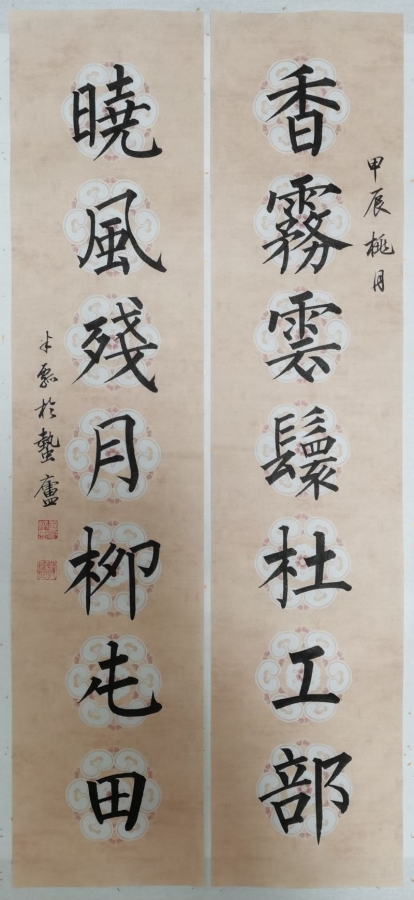 甲辰桃月
香霧雲鬟杜工部
曉風殘月柳屯田
半瓢於蟄廬